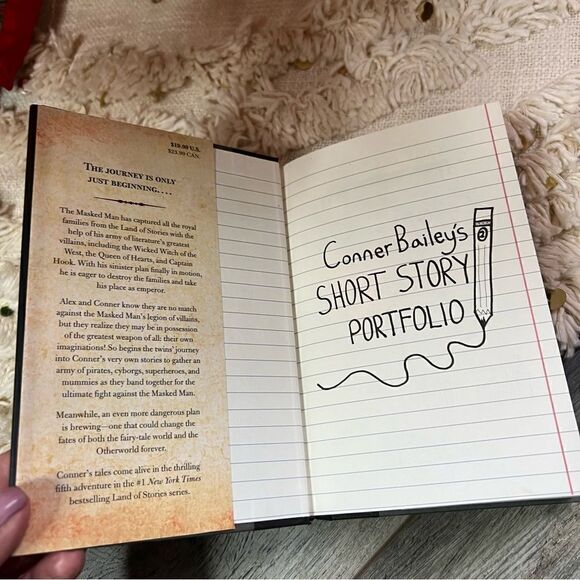 $19.99 U.S.
$23.99 CAN.
THE JOURNEY IS ONLY
JUST BEGINNING....
The Masked Man has captured all the royal
families from the Land of Stories with the
help of his army of literature's greatest
villains, including the Wicked Witch of the
West, the Queen of Hearts, and Captain
Hook. With his sinister plan finally in motion,
he is eager to destroy the families and take
his place as emperor.
Alex and Conner know they are no match
against the Masked Man's legion of villains,
but they realize they may be in possession
of the greatest weapon of all: their own
imaginations! So begins the twins' journey
into Conner's very own stories to gather an
army of pirates, cyborgs, superheroes, and
mummies as they band together for the
ultimate fight against the Masked Man.
Meanwhile, an even more dangerous plan
is brewing—one that could change the
fates of both the fairy-tale world and the
Otherworld forever.
Conner's tales come alive in the thrilling
fifth adventure in the #1 New York Times
bestselling Land of Stories series.
Conner Bailey's
SHORT STORY
PORTFOLIO
2